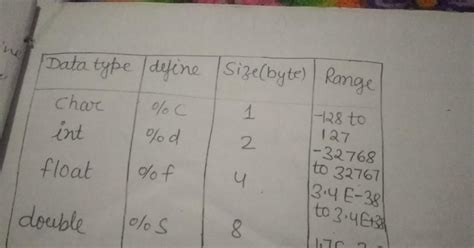 Data type define Size(byte) Range
char %c 1 -128 to
127
int %d 2 -32768
to 32767
float %f 4 3.4 E-38
to 3.4E+38
double %S 8